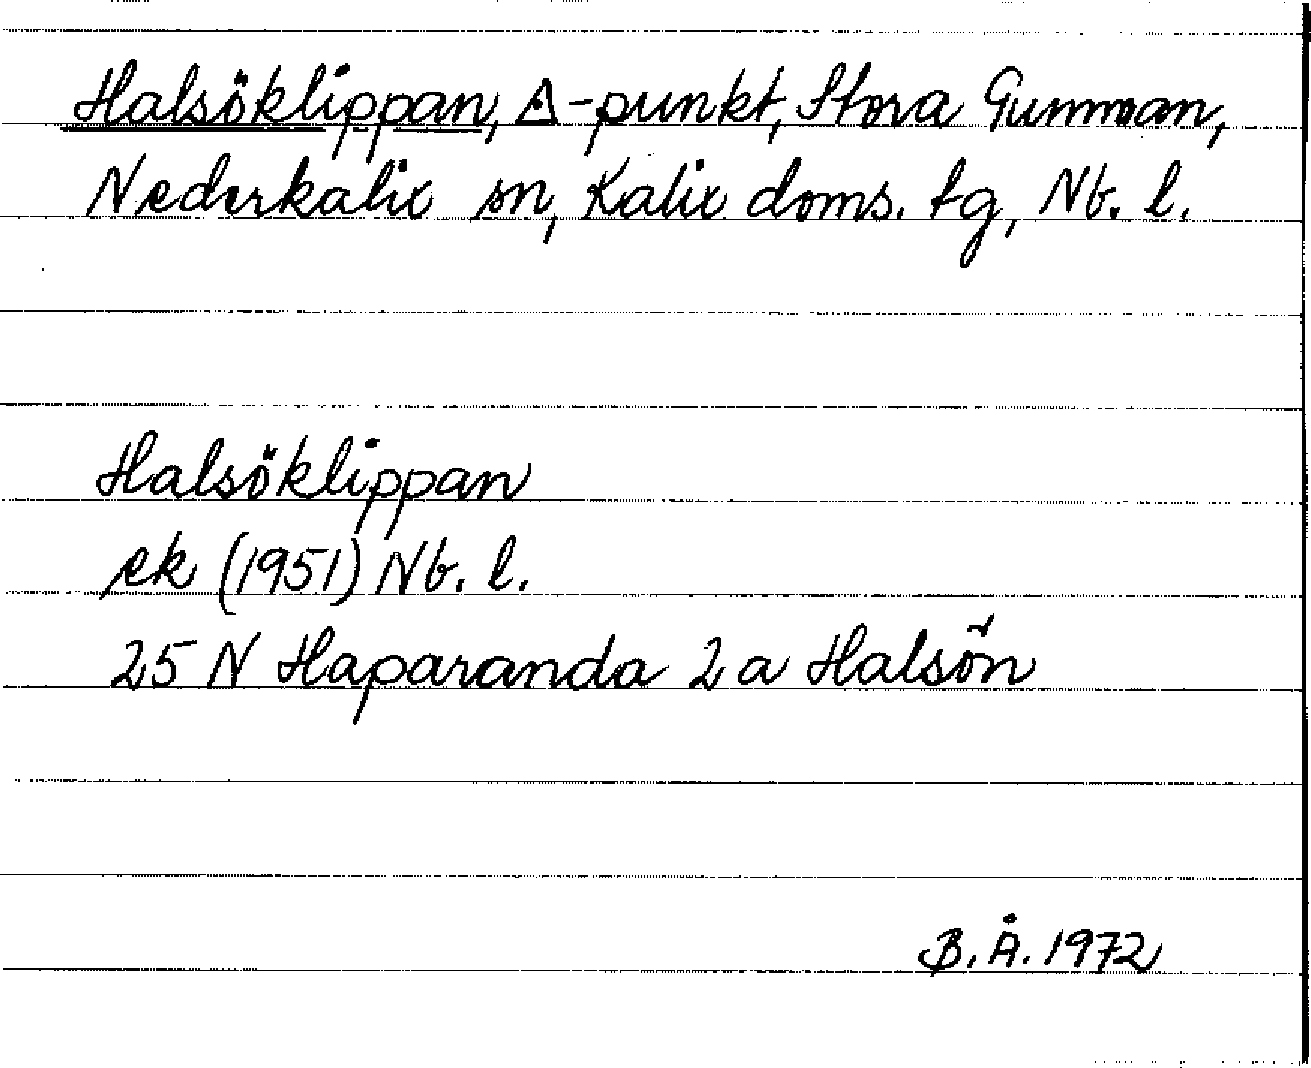 Halsöklippan, △-punkt, Stora Gumman,
Nederkalix sn, Kalix doms. tg, Nb. l.
Halsöklippan
ek (1951) Nb. l.
25 N Haparanda 2 a Halsön
B. Å. 1972